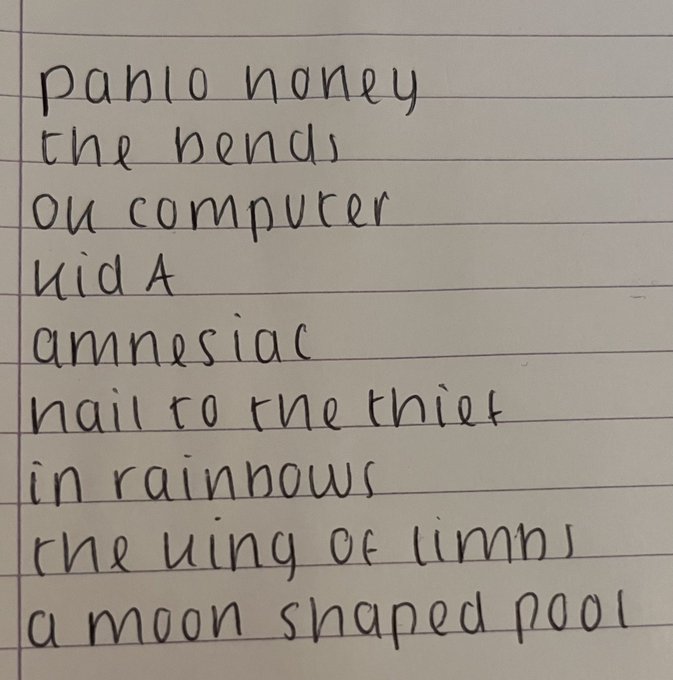 pablo honey
the bends
ok computer
kid A
amnesiac
hail to the thief
in rainbows
the king of limbs
a moon shaped pool